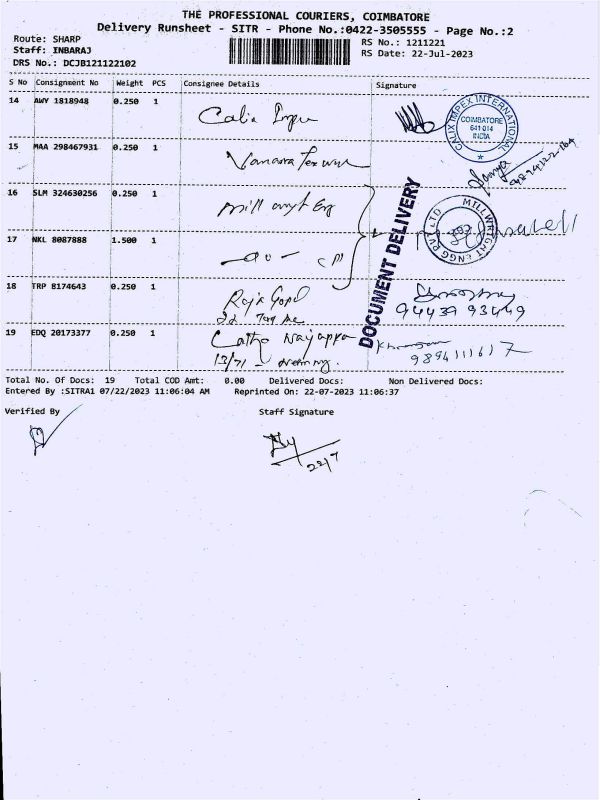 THE PROFESSIONAL COURIERS, COIMBATORE
Delivery Runsheet - SITR - Phone No.:0422-3505555 - Page No.:2
Route: SHARP
Staff: INBARAJ
DRS No.: DCJB121122102
RS No.: 1211221
RS Date: 22-Jul-2023
S No Consignment No Weight PCS Consignee Details Signature
14 AWY 1818948 0.250 1
CALIX IMPEX INTERNATIONAL
COIMBATORE
641 014
INDIA
15 MAA 298467931 0.250 1
16 SLM 324630256 0.250 1 mill
MILLWRIGHT ENGG PVT LTD
DOCUMENT DELIVERY
17 NKL 8087888 1.500 1
18 TRP 8174643 0.250 1 Raja Gopl
94439 93449
19 EDQ 20173377 0.250 1
9894111617
Total No. Of Docs: 19 Total COD Amt: 0.00 Delivered Docs: Non Delivered Docs:
Entered By :SITRA1 07/22/2023 11:06:04 AM Reprinted On: 22-07-2023 11:06:37
Verified By Staff Signature
22/7